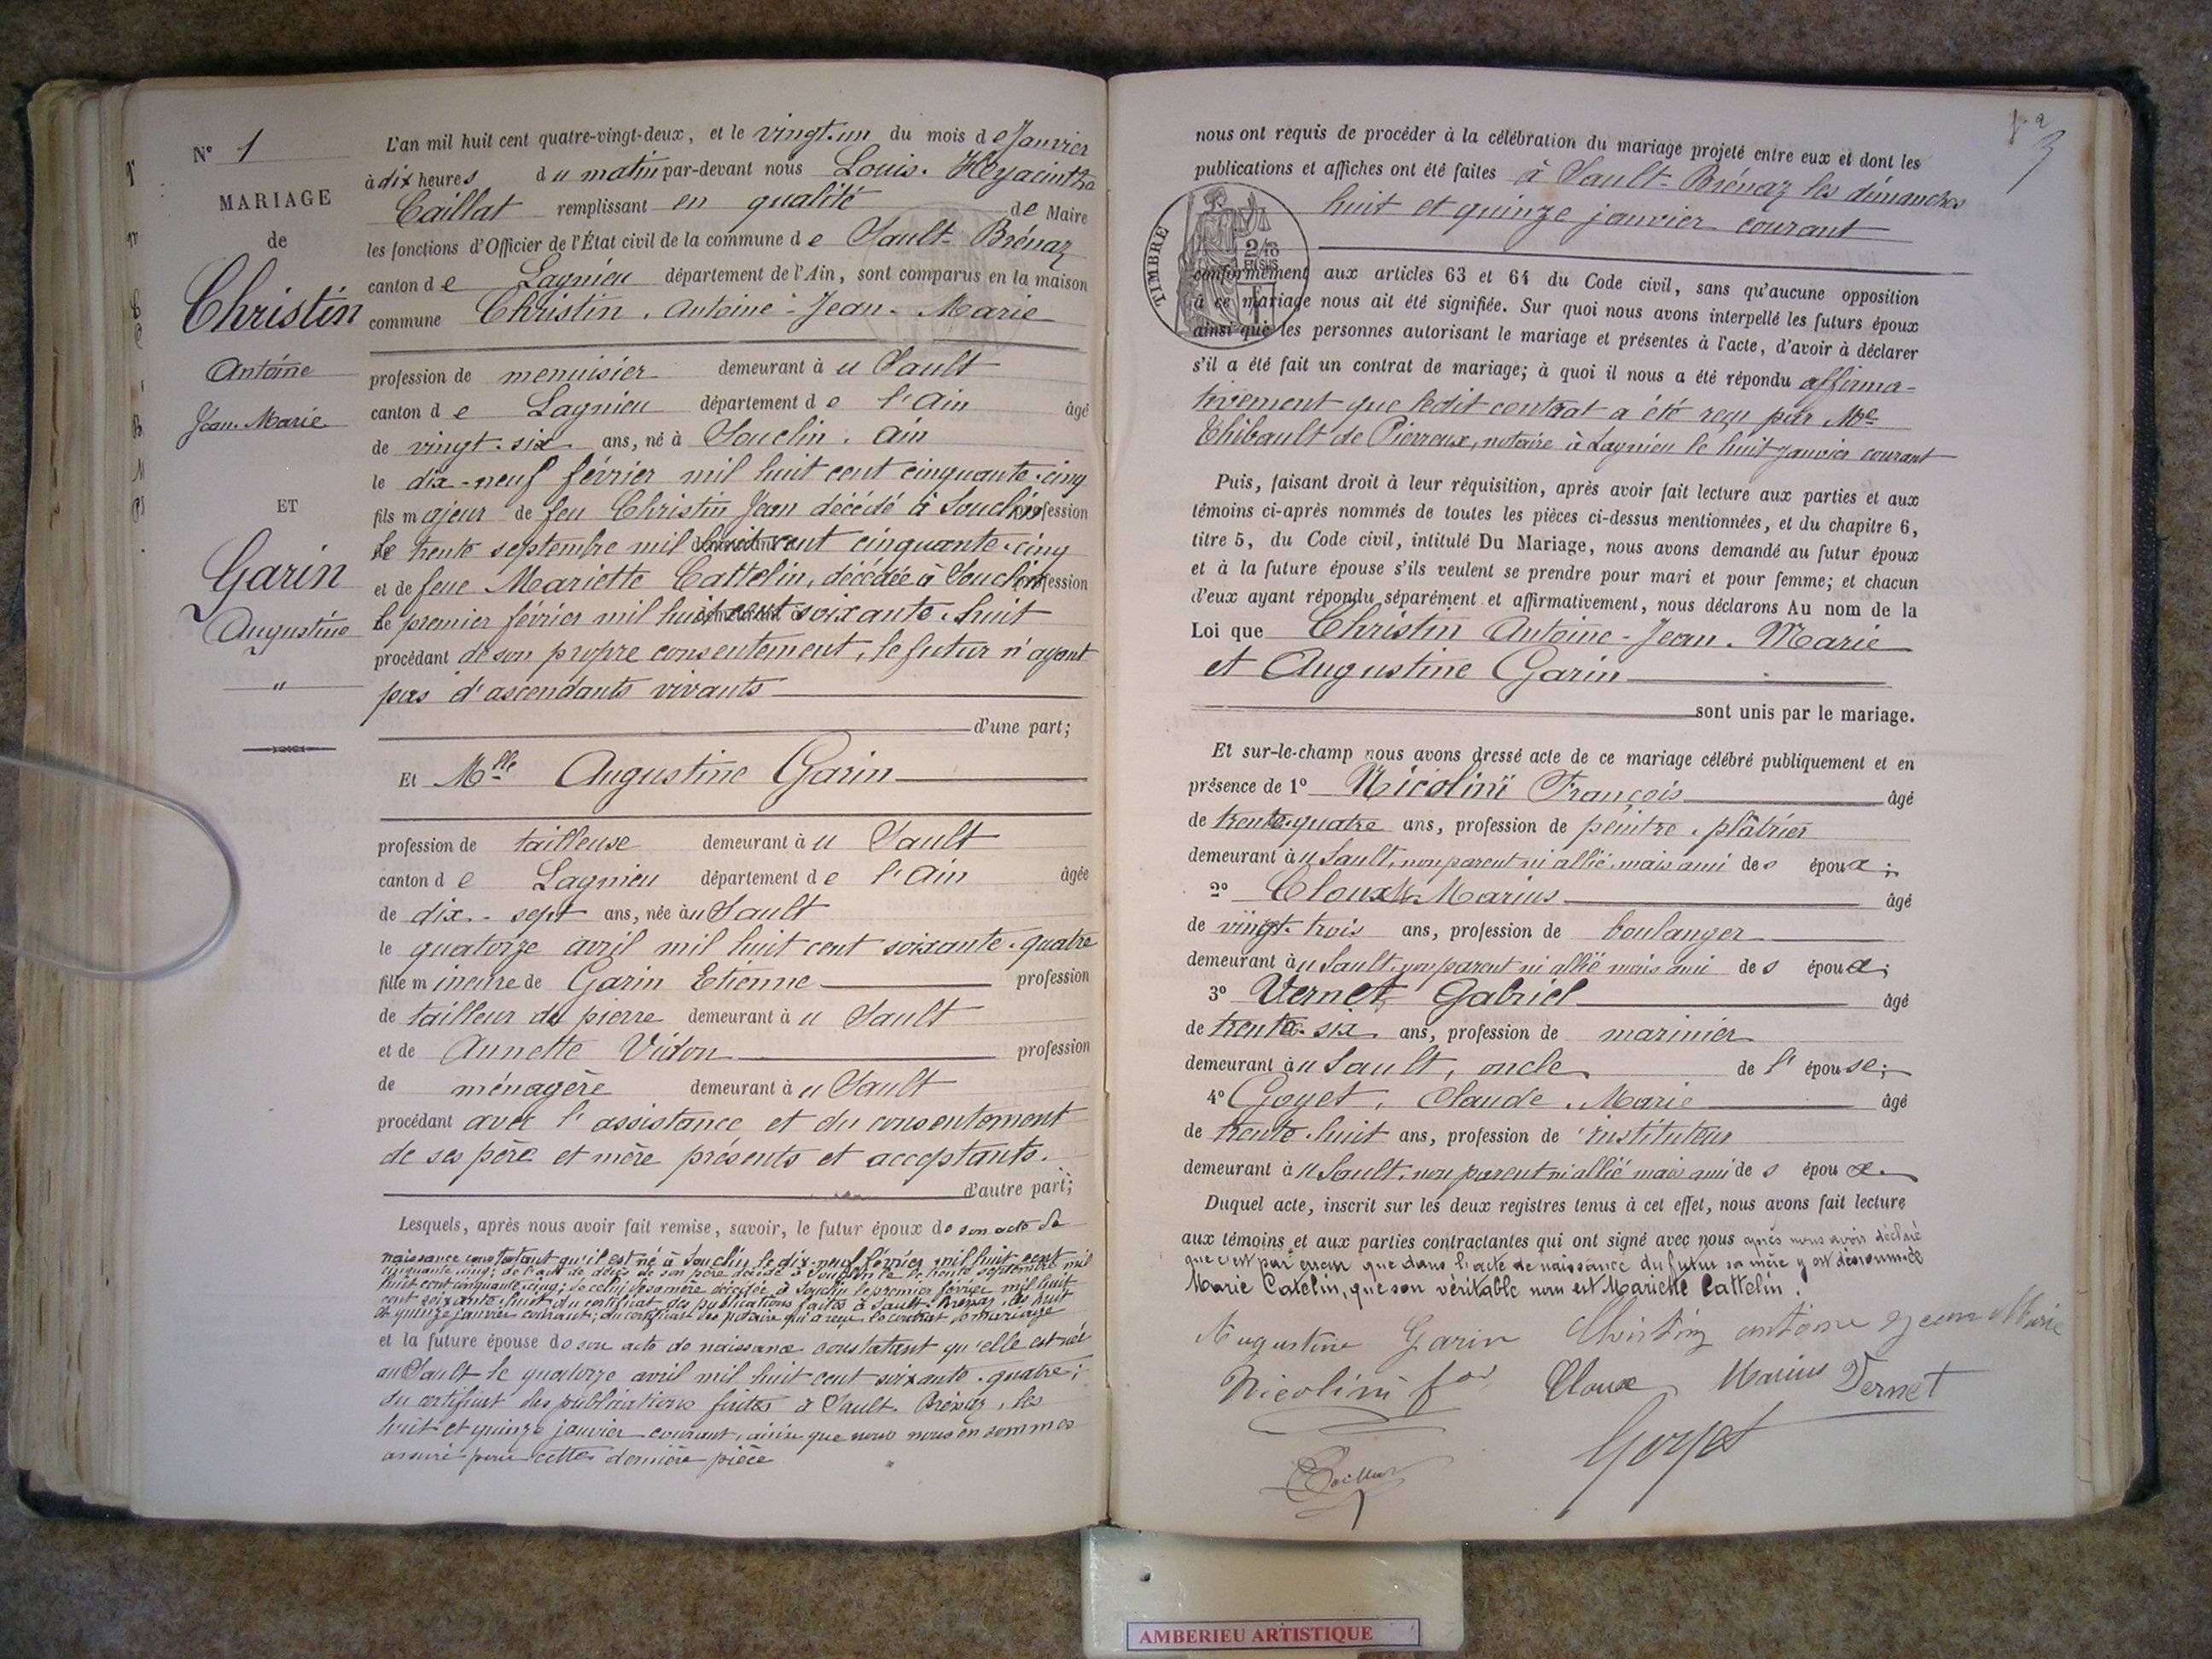 N° 1
MARIAGE
de
Christin
Antoine
Jean-Marie
ET
Garin
Augustine
"
L'an mil huit cent quatre-vingt-deux, et le vingt-un du mois de Janvier
à dix heures du matin par-devant nous Louis-Hyacinthe
Caillat remplissant en qualité de Maire
les fonctions d'Officier de l'État civil de la commune de Sault-Brénaz
canton de Lagnieu département de l'Ain, sont comparus en la maison
commune Christin, Antoine-Jean-Marie
profession de menuisier demeurant à u Sault
canton de Lagnieu département de l'Ain âgé
de vingt-six ans, né à Souclin, Ain
le dix-neuf février mil huit cent cinquante-cinq
fils majeur de feu Christin Jean décédé à Souclin profession
le trente septembre mil huit cent cinquante-cinq
et de feue Mariette Cattelin, décédée à Souclin profession
le premier février mil huit cent soixante-huit
procédant de son propre consentement, le futur n'ayant
pas d'ascendants vivants
d'une part;
Et Mlle Augustine Garin
profession de tailleuse demeurant à u Sault
canton de Lagnieu département de l'Ain âgée
de dix-sept ans, née àu Sault
le quatorze avril mil huit cent soixante-quatre
fille mineure de Garin Etienne profession
de tailleur de pierre demeurant à u Sault
et de Annette Vidon profession
de ménagère demeurant à u Sault
procédant avec l'assistance et du consentement
de ses père et mère présents et acceptants.
d'autre part;
Lesquels, après nous avoir fait remise, savoir, le futur époux de son acte de
naissance constatant qu'il est né à Souclin le dix-neuf février mil huit cent
cinquante-cinq; de l'acte de décès de son père décédé à Souclin le trente septembre mil
huit cent cinquante-cinq; de celui de sa mère décédée à Souclin le premier février mil huit
cent soixante-huit; du certificat des publications faites à Sault-Brénaz, les huit
et quinze janvier courant; du certificat du notaire qui a reçu le contrat de mariage
et la future épouse de son acte de naissance constatant qu'elle est née
au Sault le quatorze avril mil huit cent soixante-quatre;
du certificat des publications faites à Sault-Brénaz, les
huit et quinze janvier courant, ainsi que nous nous en sommes
assuré pour cette dernière pièce
3
nous ont requis de procéder à la célébration du mariage projeté entre eux et dont les
publications et affiches ont été faites à Sault-Brénaz les dimanches
huit et quinze janvier courant
TIMBRE
2/10
EN SUS
conformément aux articles 63 et 64 du Code civil, sans qu'aucune opposition
à ce mariage nous ait été signifiée. Sur quoi nous avons interpellé les futurs époux
ainsi que les personnes autorisant le mariage et présentes à l'acte, d'avoir à déclarer
s'il a été fait un contrat de mariage; à quoi il nous a été répondu affirma-
tivement que ledit contrat a été reçu par Me
Thibault de Pierreux, notaire à Lagnieu le huit janvier courant
Puis, faisant droit à leur réquisition, après avoir fait lecture aux parties et aux
témoins ci-après nommés de toutes les pièces ci-dessus mentionnées, et du chapitre 6,
titre 5, du Code civil, intitulé Du Mariage, nous avons demandé au futur époux
et à la future épouse s'ils veulent se prendre pour mari et pour femme; et chacun
d'eux ayant répondu séparément et affirmativement, nous déclarons Au nom de la
Loi que Christin Antoine-Jean-Marie
et Augustine Garin
sont unis par le mariage.
Et sur-le-champ nous avons dressé acte de ce mariage célébré publiquement et en
présence de 1° Nicolini François âgé
de trente-quatre ans, profession de peintre-plâtrier
demeurant àu Sault, non parent ni allié, mais ami des époux;
2° Cloux Marius âgé
de vingt-trois ans, profession de boulanger
demeurant àu Sault, non parent ni allié mais ami des époux;
3° Vernet Gabriel âgé
de trente-six ans, profession de marinier
demeurant àu Sault, oncle de l'épouse;
4° Goyet, Claude-Marie âgé
de trente-huit ans, profession de instituteur
demeurant àu Sault, non parent ni allié mais ami des époux.
Duquel acte, inscrit sur les deux registres tenus à cet effet, nous avons fait lecture
aux témoins et aux parties contractantes qui ont signé avec nous après nous avoir déclaré
que c'est par erreur que dans l'acte de naissance du futur sa mère y est dénommée
Marie Catelin, que son véritable nom est Mariette Cattelin.
Augustine Garin Christin antoine jean Marie
Nicolini fois Cloux Marius Vernet
Goyet
Caillat
AMBERIEU ARTISTIQUE